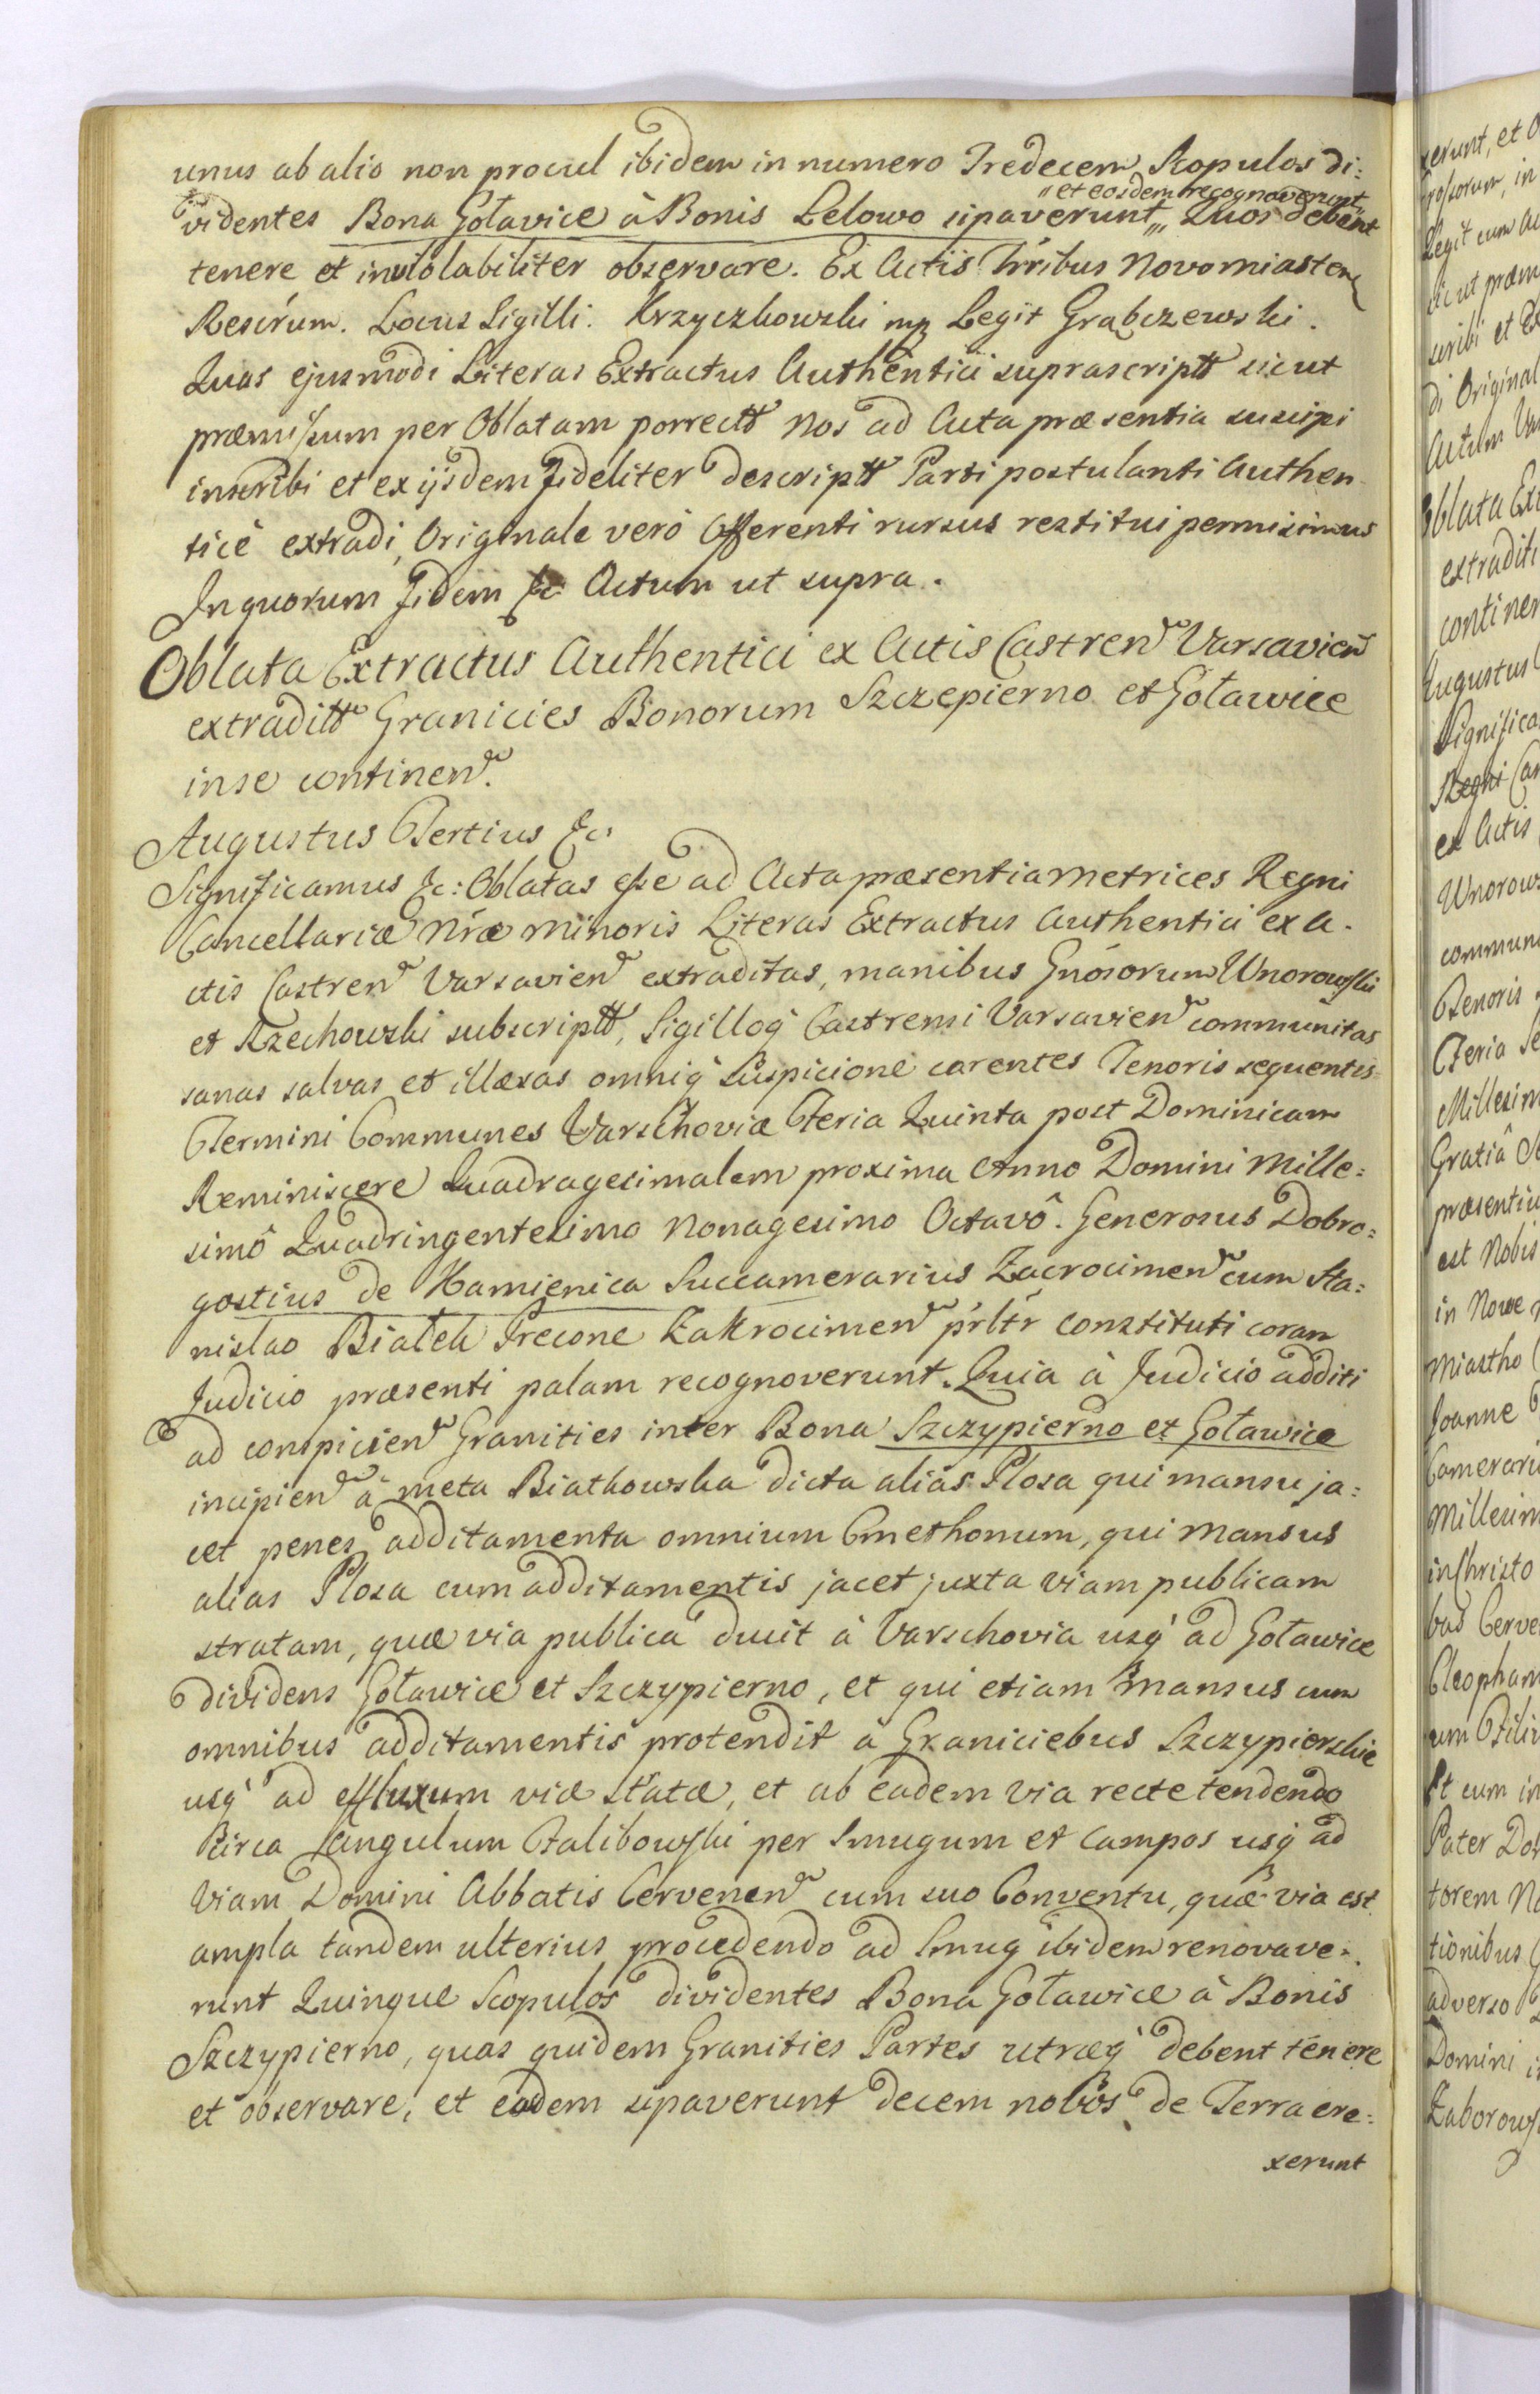 unus ab alio non procul ibidem in numero Tredecem Scopulos di:
„et eosdem recognoverunt„
videntes Bona Goławice à Bonis Lelowo sipaverunt„ Quos debent
tenere et inviolabiliter observare. Ex Actis Trribus Novomiasten
Rescrum. Locus Sigilli. Krzyczkowski mp Legit Grabczewski.
Quas ejusmodi Literas Extractus Authentici suprascriptt sicut
præmissum per Oblatam porrectt Nos ad Acta præsentia suscipi
inscribi et ex ijsdem Fideliter descriptt Parti postulanti Authen
ticè extradi, Originale verò Offerenti rursus restitui permisimus
In quorum Fidem &c Actum ut supra.
Oblata Extractus Authentici ex Actis Castren Varsavien
extraditt Granicies Bonorum Szczepierno et Goławice
in se continen.
Augustus Tertius &c
Significamus &c: Oblatas esse ad Acta præsentia Metrices Regni
Cancellariæ Nræ Minoris Literas Extractus Authentici ex A-
ctis Castren Varsavien extraditas, manibus Gnosorum Wnorowski
et Rzechowski subscriptt, Sigilloq Castrensi Varsavien communitas
sanas salvas et illæsas omniq Suspicione carentes Tenoris sequentis
Termini Communes Varschoviæ Feria Quinta post Dominicam
Reminiscere Quadragesimalem proxima Anno Domini Mille:
simô Quadringentesimo Nonagesimo Octavô. Generosus Dobro:
gostius de Kamienica Succamerarius Zacrocimen cum Sta:
nislao Białek Precone Zakrocimen prltr constituti coram
Judicio præsenti palam recognoverunt. Quia à Judicio additi
ad conspicien Granities inter Bona Szczypierno et Goławice
incipien à meta Białkowska dicta aliàs Plosa qui mansu ja:
cet penes additamenta omnium Cmethonum, qui Mansus
alias Plosa cum additamentis jacet juxta viam publicam
stratam, quæ via publica ducit à Varschovia usq ad Goławice
dividens Goławice et Szczypierno, et qui etiam Mansus cum
omnibus additamentis protendit à Graniciebus Szczypierskie
usq ad effluxum viæ statæ, et ab eadem via recte tendendo
Circa Angulum Falibowski per Smugum et Campos usq ad
viam Domini Abbatis Cervenen cum suo Conventu, quæ via est
ampla tandem ulterius procedendo ad Smug ibidem renovave:
runt Quinque Scopulos dividentes Bona Goławice à Bonis
Szczypierno, quas quidem Granities Partes utræq debent tenere
et observare, et eadem sipaverunt decem nobos de Terra ere:
xerunt